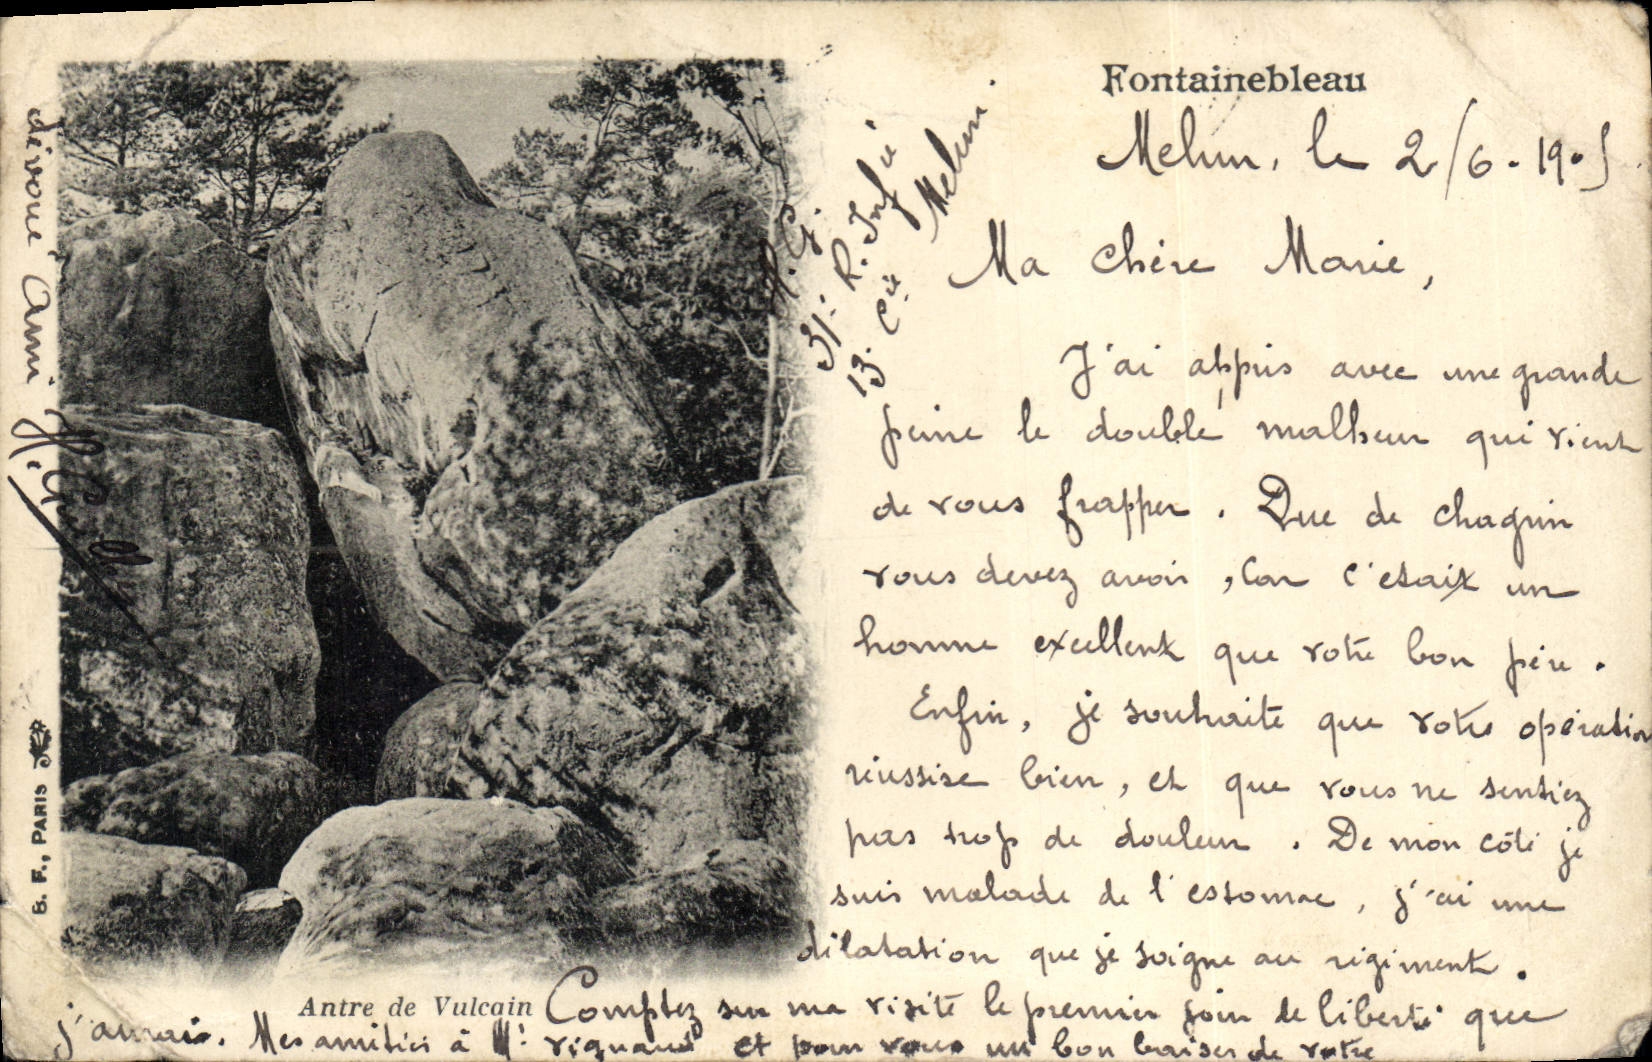 Fontainebleau
Melun, le 2/6.1905
Ma chère Marie,
J'ai appris avec une grande
peine le double malheur qui vient
de vous frapper. Que de chagrin
vous devez avoir, car c'etait un
homme excellent que votre bon père.
Enfin, je souhaite que votre opération
réussise bien, et que vous ne sentiez
pas trop de douleur. De mon côté je
suis malade de l'estomac, j'ai une
dilatation que je soigne au régiment.
Antre de Vulcain
Comptez sur ma visite le premier jour de liberté que
j'aurais. Mes amitiés à Mr et pour vous un bon baiser de votre
dévoué ami H.
H. G.
31. R. Infie
13. Cie Melun.
B. F., PARIS